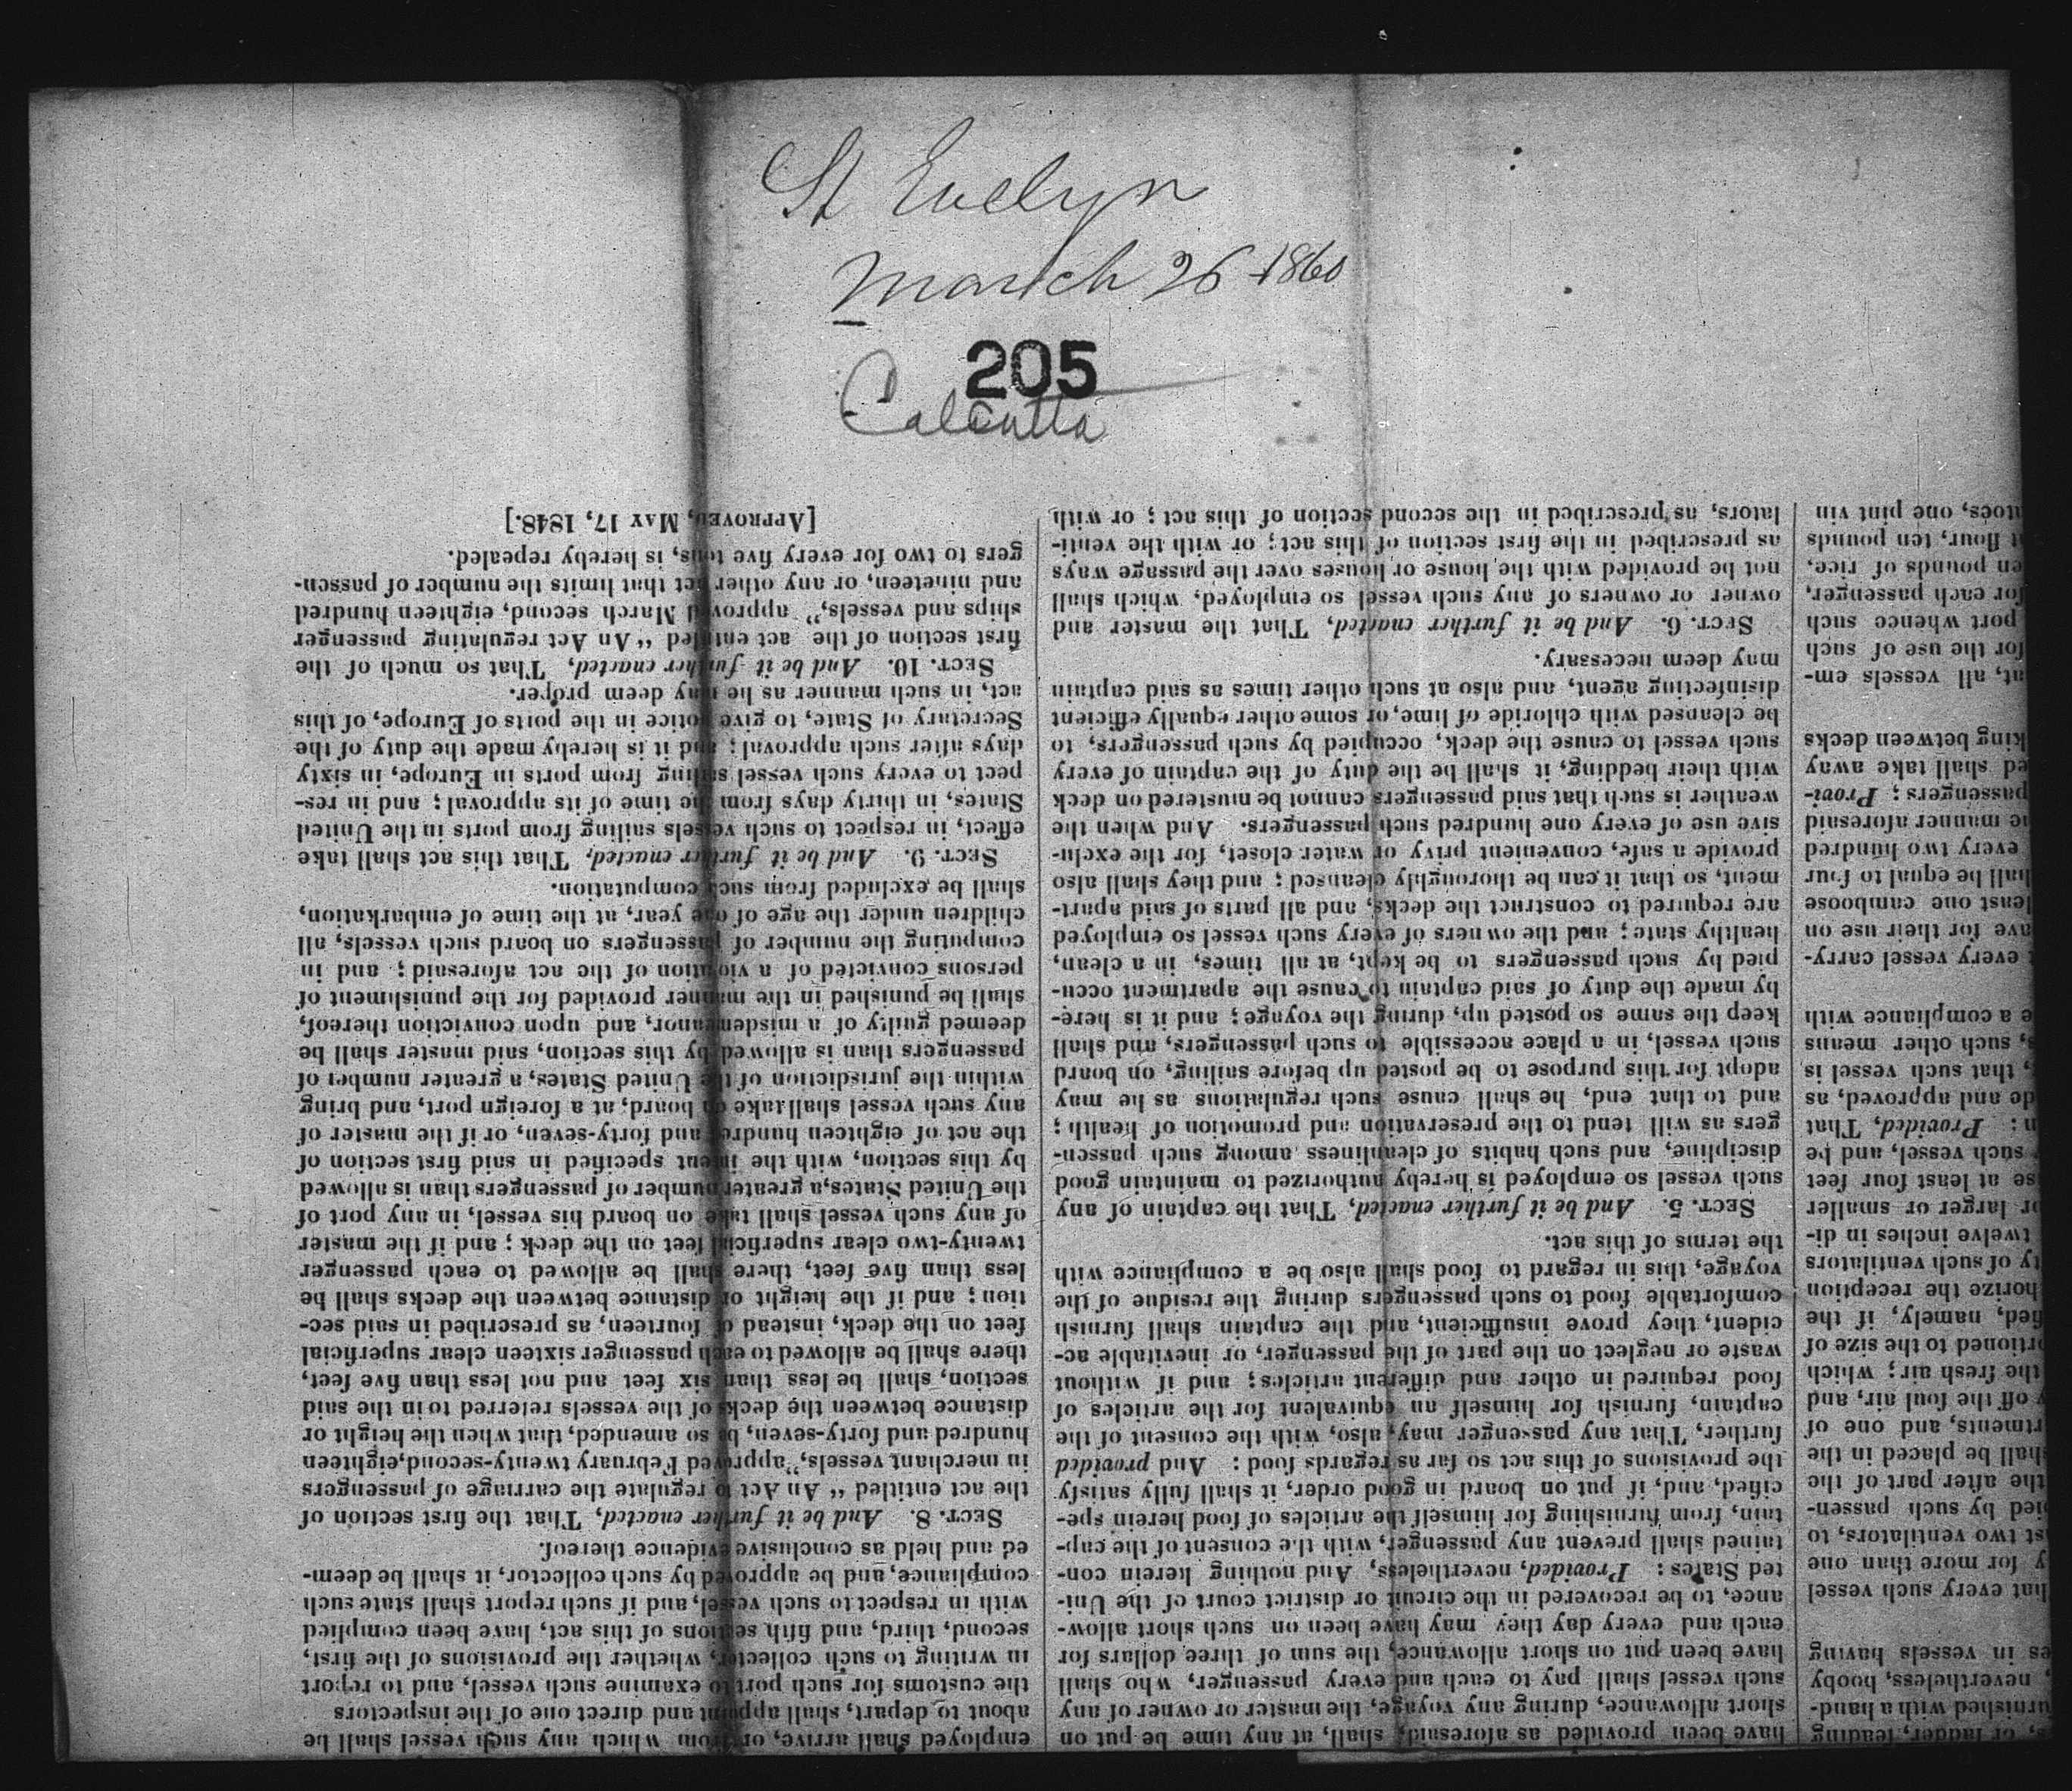 St Evelyn
March 26 1860
205
Calcutta
or ladder, leading
urnished with a hand-
, nevertheless, booby
es in vessels having
hat every such vessel
y for more than one
st two ventilators, to
pied by such passen-
the after part of the
shall be placed in the
rtments, and one of
y off the foul air, and
the fresh air; which
ortioned to the size of
fied, namely, if the
horize the reception
ty of such ventilators
twelve inches in di-
or larger or smaller
se at least four feet
such vessel, and be
n: Provided, That
de and approved, as
, that such vessel is
s, such other means
e a compliance with
t every vessel carry-
ave for their use on
least one camboose
hall be equal to four
every two hundred
he manner aforesaid
passengers; Provi-
ed shall take away
king between decks
at, all vessels em-
for the use of such
port whence such
for each passenger,
en pounds of rice,
t flour, ten pounds
atoes, one pint vin
have been provided as aforesaid, shall, at any time be put on
short allowance, during any voyage, the master or owner of any
such vessel shall pay to each and every passenger, who shall
have been put on short allowance, the sum of three dollars for
each and every day they may have been on such short allow-
ance, to be recovered in the circuit or district court of the Uni-
ted States: Provided, nevertheless, And nothing herein con-
tained shall prevent any passenger, with the consent of the cap-
tain, from furnishing for himself the articles of food herein spe-
cified, and, if put on board in good order, it shall fully satisfy
the provisions of this act so far as regards food: And provided
further, That any passenger may, also, with the consent of the
captain, furnish for himself an equivalent for the articles of
food required in other and different articles; and if without
waste or neglect on the part of the passenger, or inevitable ac-
cident, they prove insufficient, and the captain shall furnish
comfortable food to such passengers during the residue of the
voyage, this in regard to food shall also be a compliance with
the terms of this act.
SECT. 5. And be it further enacted, That the captain of any
such vessel so employed is hereby authorized to maintain good
discipline, and such habits of cleanliness among such passen-
gers as will tend to the preservation and promotion of health;
and to that end, he shall cause such regulations as he may
adopt for this purpose to be posted up before sailing, on board
such vessel, in a place accessible to such passengers, and shall
keep the same so posted up, during the voyage; and it is here-
by made the duty of said captain to cause the apartment occu-
pied by such passengers to be kept, at all times, in a clean,
healthy state; and the owners of every such vessel so employed
are required to construct the decks, and all parts of said apart-
ment, so that it can be thoroughly cleansed; and they shall also
provide a safe, convenient privy or water closet, for the exclu-
sive use of every one hundred such passengers. And when the
weather is such that said passengers cannot be mustered on deck
with their bedding, it shall be the duty of the captain of every
such vessel to cause the deck, occupied by such passengers, to
be cleansed with chloride of lime, or some other equally efficient
disinfecting agent, and also at such other times as said captain
may deem necessary.
SECT. 6. And be it further enacted, That the master and
owner or owners of any such vessel so employed, which shall
not be provided with the house or houses over the passage ways
as prescribed in the first section of this act; or with the venti-
lators, as prescribed in the second section of this act; or with
employed shall arrive, or from which any such vessel shall be
about to depart, shall appoint and direct one of the inspectors
the customs for such port to examine such vessel, and to report
in writing to such collector, whether the provisions of the first,
second, third, and fifth sections of this act, have been complied
with in respect to such vessel, and if such report shall state such
compliance, and be approved by such collector, it shall be deem-
ed and held as conclusive evidence thereof.
SECT. 8. And be it further enacted, That the first section of
the act entitled “An Act to regulate the carriage of passengers
in merchant vessels,” approved February twenty-second, eighteen
hundred and forty-seven, be so amended, that when the height or
distance between the decks of the vessels referred to in the said
section, shall be less than six feet and not less than five feet,
there shall be allowed to each passenger sixteen clear superficial
feet on the deck, instead of fourteen, as prescribed in said sec-
tion; and if the height or distance between the decks shall be
less than five feet, there shall be allowed to each passenger
twenty-two clear superficial feet on the deck; and if the master
of any such vessel shall take on board his vessel, in any port of
the United States, a greater number of passengers than is allowed
by this section, with the intent specified in said first section of
the act of eighteen hundred and forty-seven, or if the master of
any such vessel shall take on board, at a foreign port, and bring
within the jurisdiction of the United States, a greater number of
passengers than is allowed by this section, said master shall be
deemed guilty of a misdemeanor, and upon conviction thereof,
shall be punished in the manner provided for the punishment of
persons convicted of a violation of the act aforesaid; and in
computing the number of passengers on board such vessels, all
children under the age of one year, at the time of embarkation,
shall be excluded from such computation.
SECT. 9. And be it further enacted, That this act shall take
effect, in respect to such vessels sailing from ports in the United
States, in thirty days from the time of its approval; and in res-
pect to every such vessel sailing from ports in Europe, in sixty
days after such approval; and it is hereby made the duty of the
Secretary of State, to give notice in the ports of Europe, of this
act, in such manner as he may deem proper.
SECT. 10. And be it further enacted, That so much of the
first section of the act entitled “An Act regulating passenger
ships and vessels,” approved March second, eighteen hundred
and nineteen, or any other act that limits the number of passen-
gers to two for every five tons, is hereby repealed.
[APPROVED, MAY 17, 1848.]